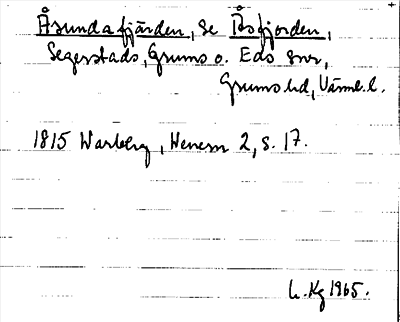 Åsundafjärden, se Åsfjorden,
Segerstads, Grums o. Eds snr,
Grums hd, Värml. l.
1815 Warberg, Wenern 2, s. 17.
L. Kg 1965.